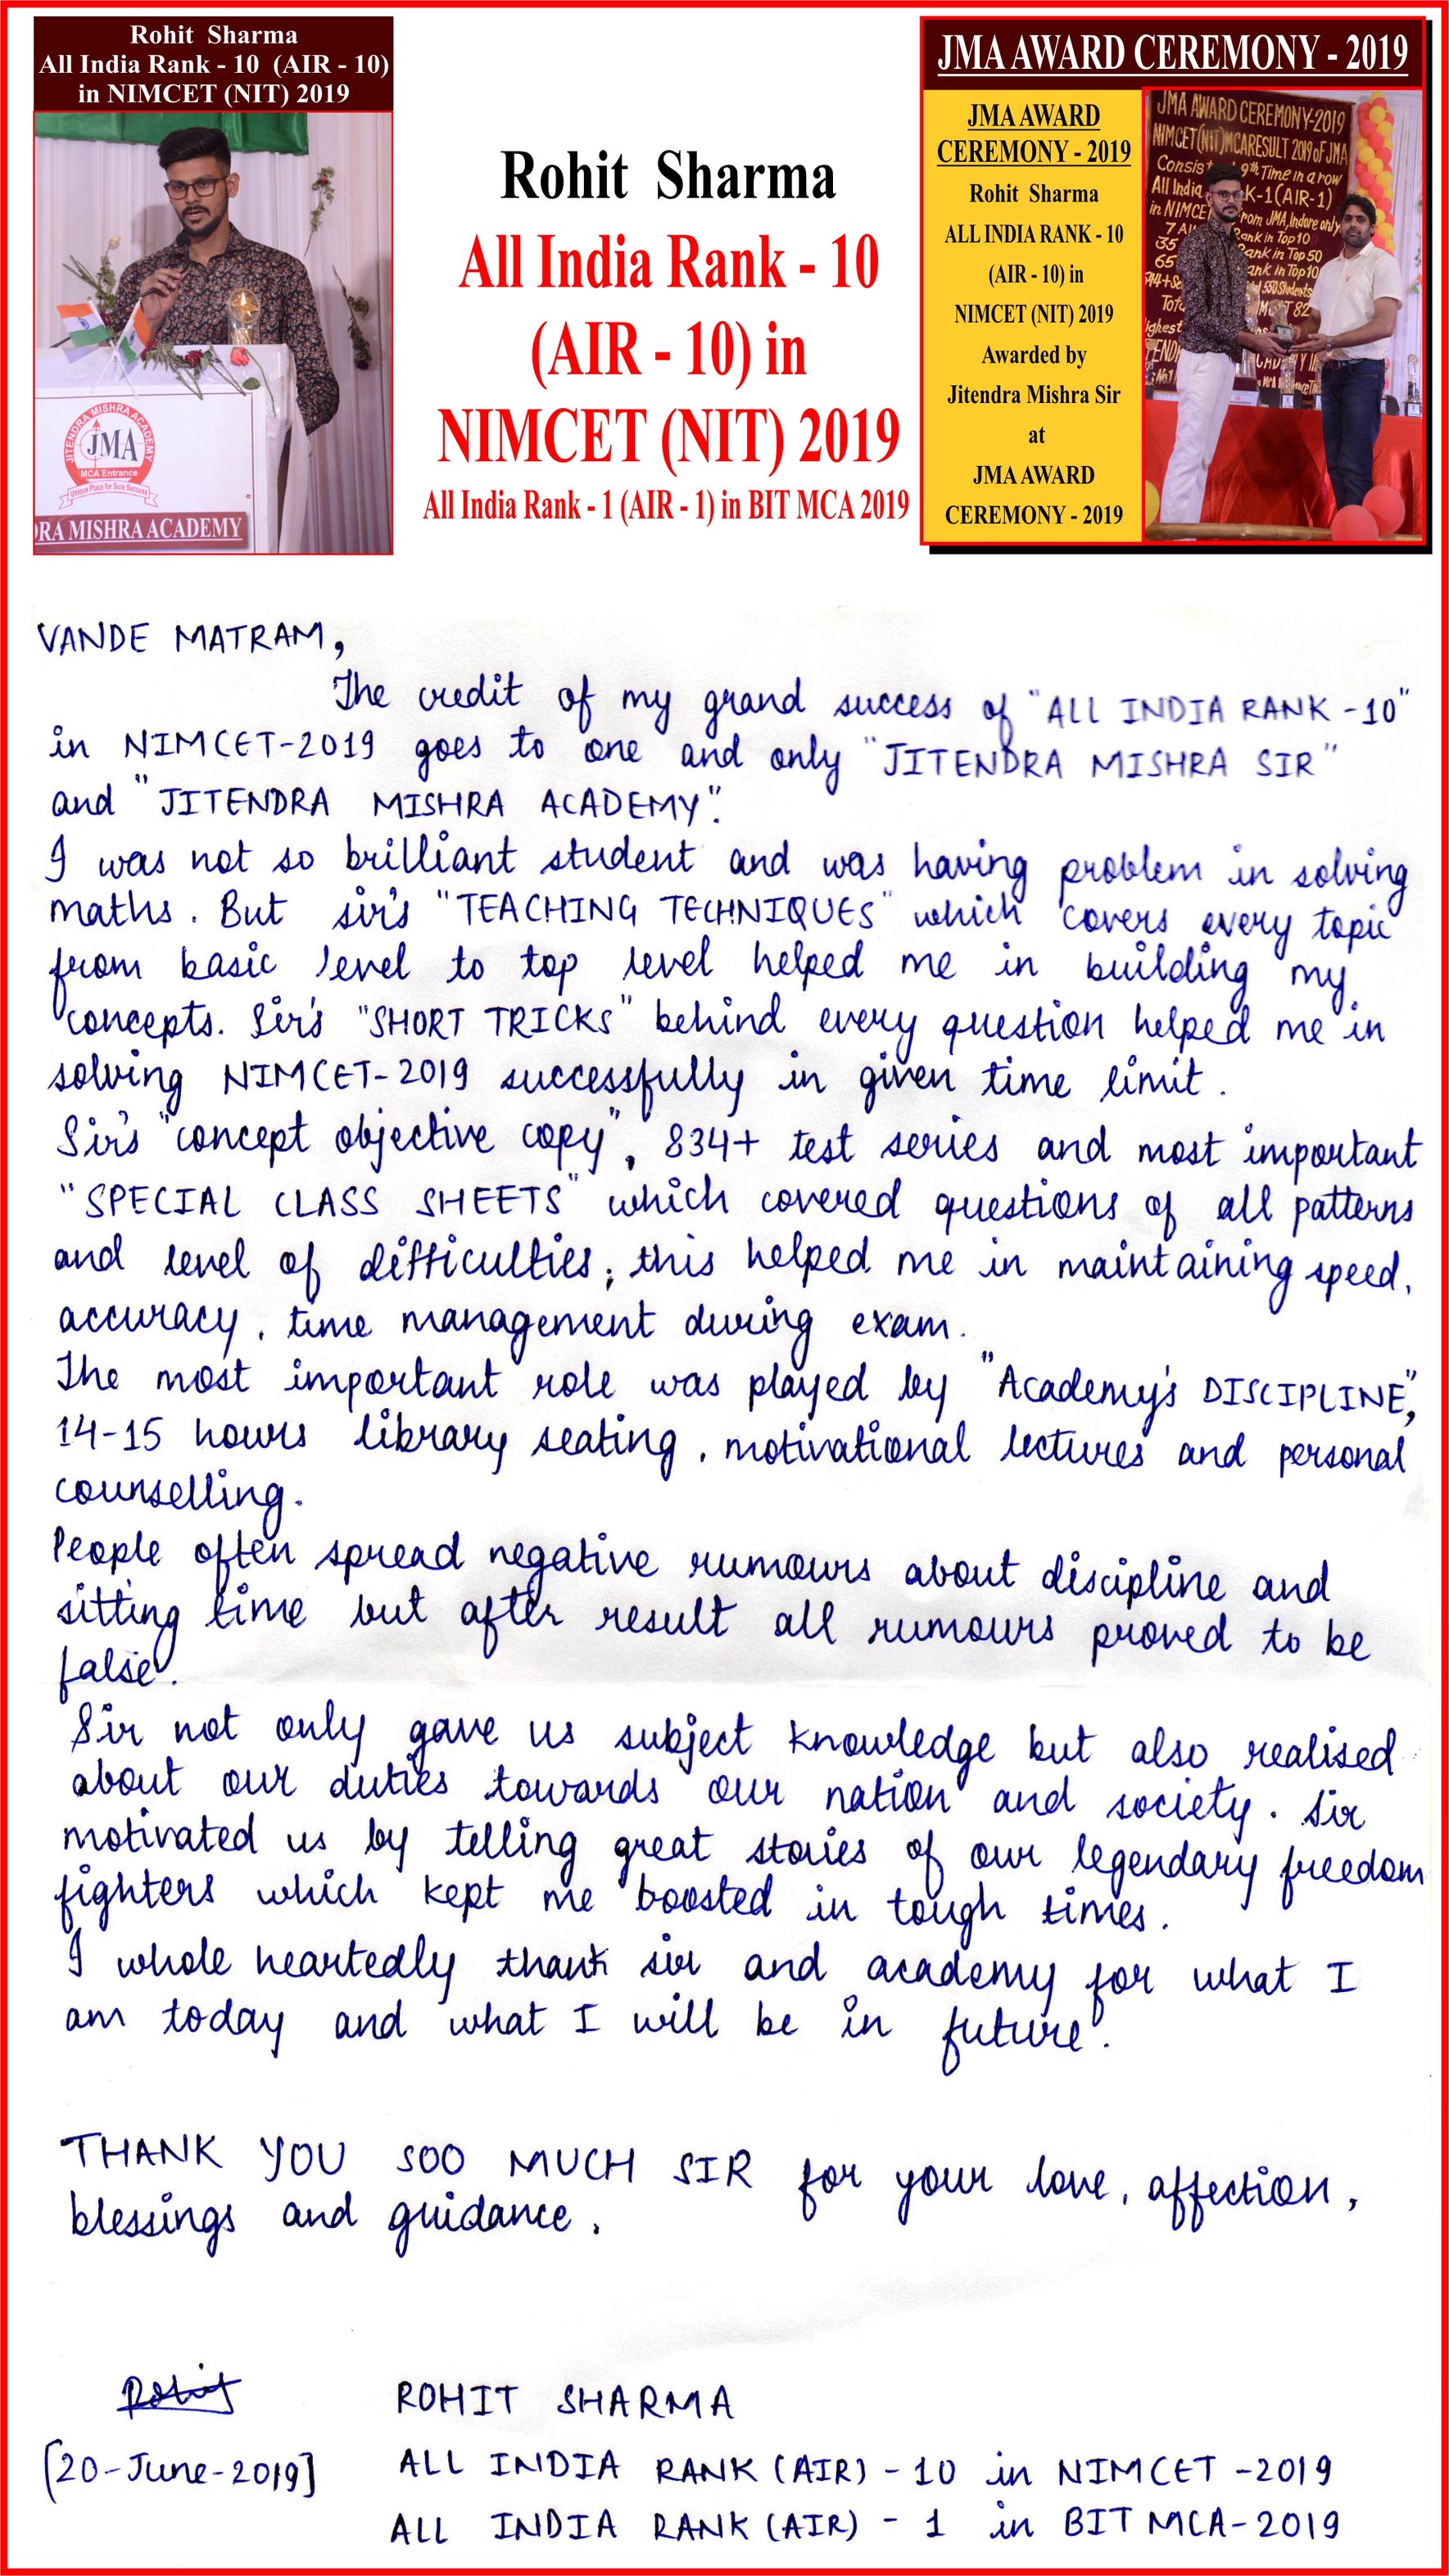 Rohit Sharma
All India Rank - 10 (AIR - 10)
in NIMCET (NIT) 2019
JITENDRA MISHRA ACADEMY
JMA
MCA Entrance
Unique Place for Sure Success
DRA MISHRA ACADEMY
Rohit Sharma
All India Rank - 10
(AIR - 10) in
NIMCET (NIT) 2019
All India Rank - 1 (AIR - 1) in BIT MCA 2019
JMA AWARD CEREMONY - 2019
JMA AWARD
CEREMONY - 2019
Rohit Sharma
ALL INDIA RANK - 10
(AIR - 10) in
NIMCET (NIT) 2019
Awarded by
Jitendra Mishra Sir
at
JMA AWARD
CEREMONY - 2019
JMA AWARD CEREMONY-2019
NIMCET(NIT)MCA RESULT 2019 OF JMA
Consis 9th Time in a row
All India K-1 (AIR-1)
in NIMCE rom JMA, Indore only
7 A Rank in Top 10
35 ank in Top 50
65 ank in Top 10
VANDE MATRAM,
The credit of my grand success of "ALL INDIA RANK -10"
in NIMCET-2019 goes to one and only "JITENDRA MISHRA SIR"
and "JITENDRA MISHRA ACADEMY".
I was not so brilliant student and was having problem in solving
maths. But sir's "TEACHING TECHNIQUES" which covers every topic
from basic level to top level helped me in building my
concepts. Sir's "SHORT TRICKS" behind every question helped me in
solving NIMCET-2019 successfully in given time limit.
Sir's "concept objective copy", 834+ test series and most important
"SPECIAL CLASS SHEETS" which covered questions of all patterns
and level of difficulties, this helped me in maintaining speed,
accuracy, time management during exam.
The most important role was played by "Academy's DISCIPLINE",
14-15 hours library seating, motivational lectures and personal
counselling.
People often spread negative rumours about discipline and
sitting time but after result all rumours proved to be
false.
Sir not only gave us subject knowledge but also realised
about our duties towards our nation and society. Sir
motivated us by telling great stories of our legendary freedom
fighters which kept me boosted in tough times.
I whole heartedly thank sir and academy for what I
am today and what I will be in future.
THANK YOU SOO MUCH SIR for your love, affection,
blessings and guidance.
Rohit
ROHIT SHARMA
[20-June-2019]
ALL INDIA RANK (AIR) - 10 in NIMCET -2019
ALL INDIA RANK (AIR) - 1 in BIT MCA-2019